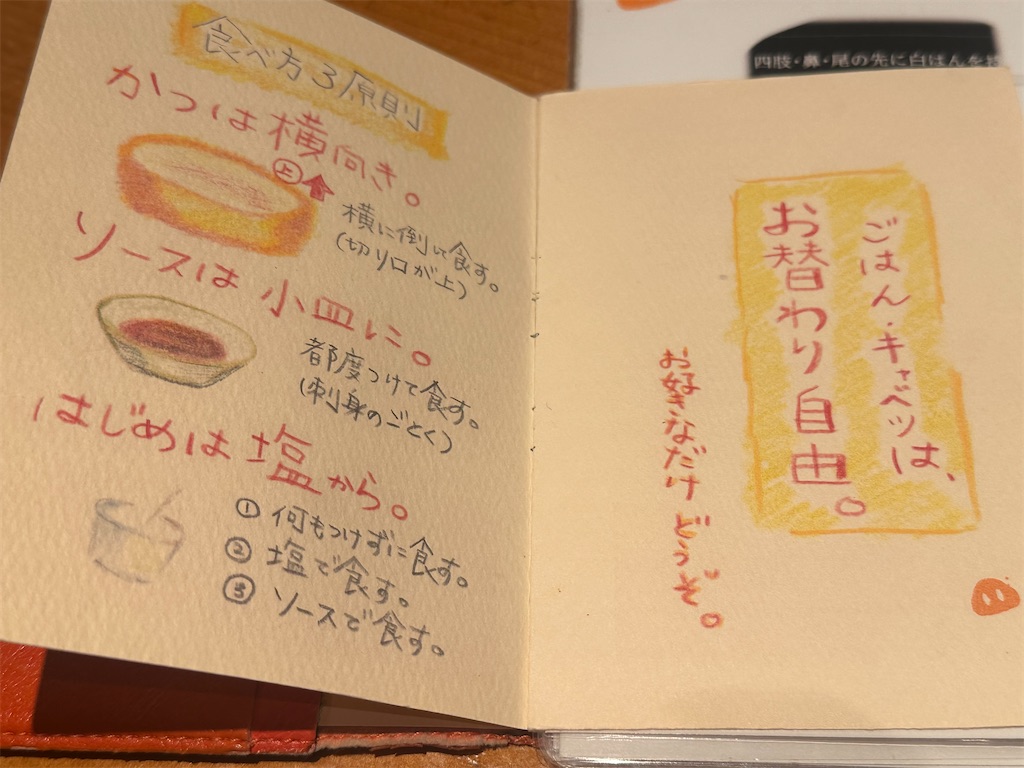 食べ方3原則
かつは横向き。
上
横に倒して食す。
(切り口が上)
ソースは小皿に。
都度つけて食す。
(刺身のごとく)
はじめは塩から。
① 何もつけずに食す。
② 塩で食す。
③ ソースで食す。
四肢・鼻・尾の先に白ぱんを
ごはん・キャベツは、
お替わり自由。
お好きなだけどうぞ。